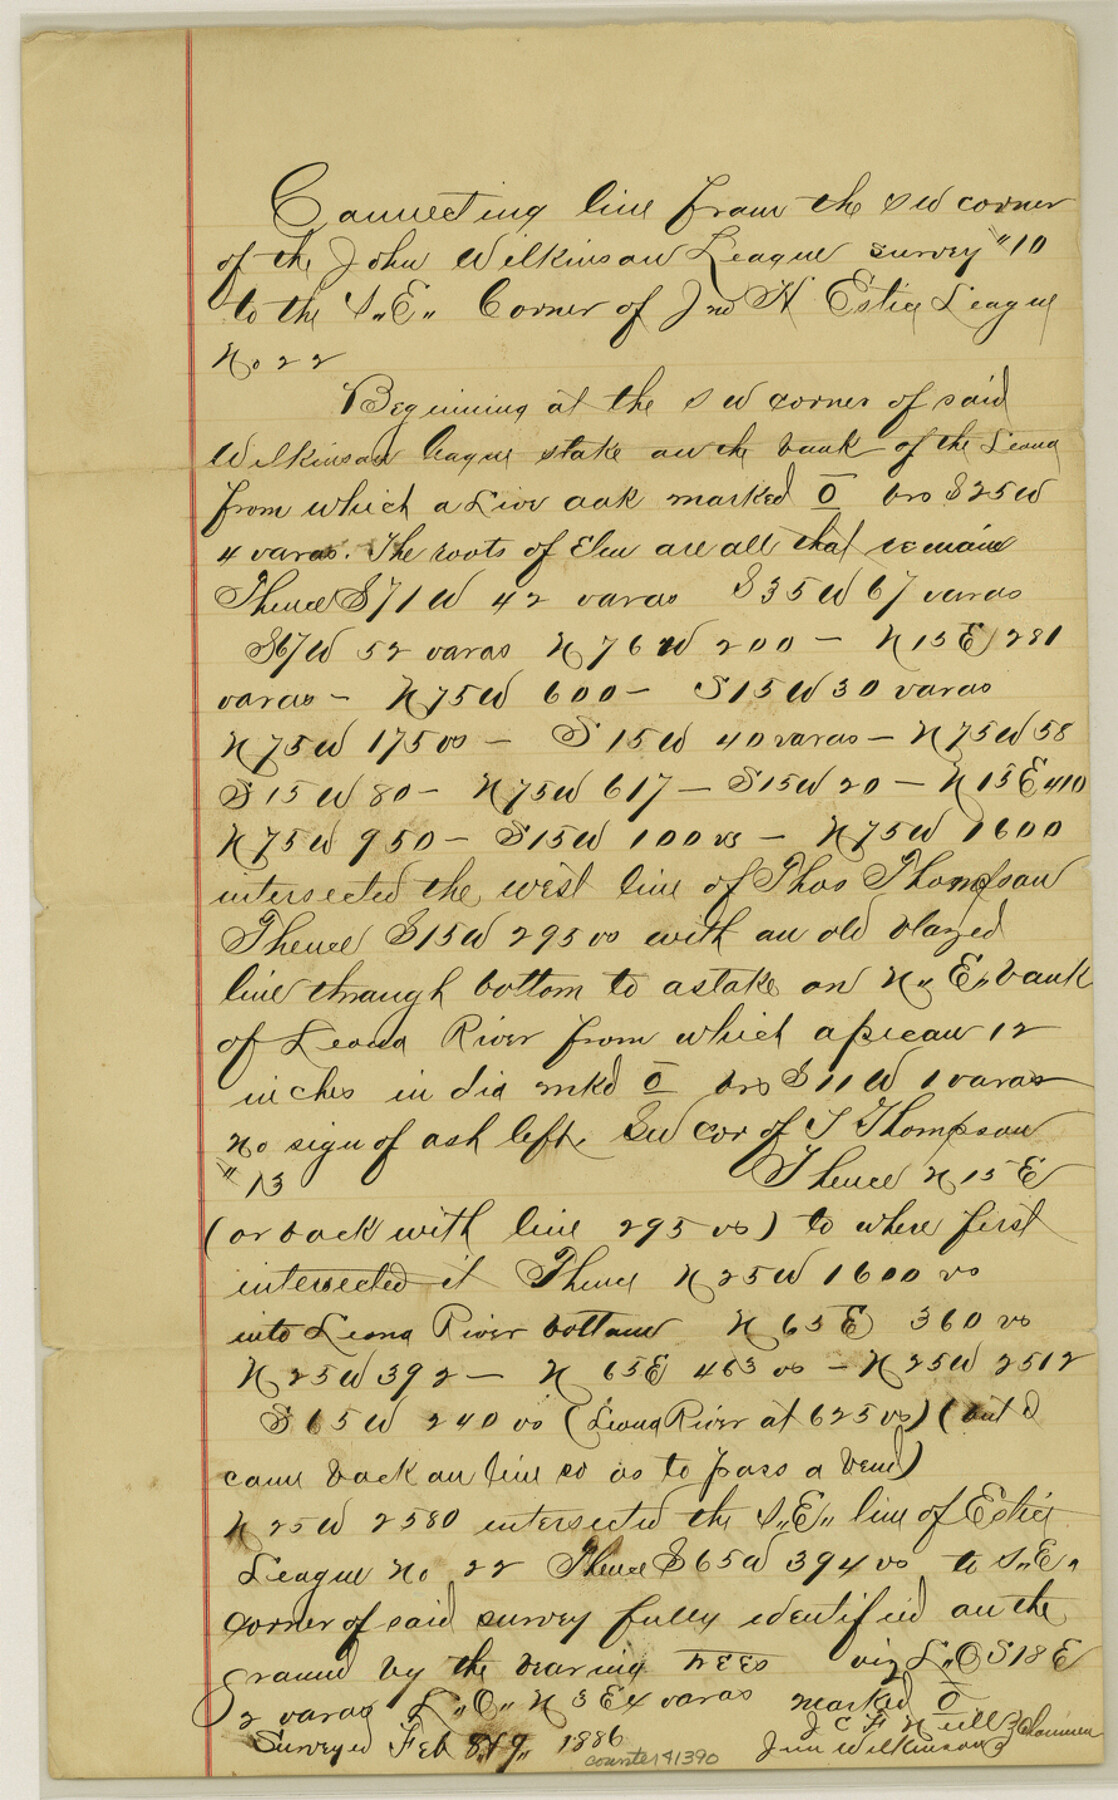 Connecting line from the S W corner
of the John Wilkinson League survey "10
to the S"E" Corner of Jno H Estis League
No 22
Beginning at the S W corner of said
Wilkinson league stake on the bank of the Leona
from which a Live oak marked O brs S 25 W
4 varas. The roots of Elm are all that remain
Thence S 71 W 42 varas S 35 W 67 varas
S 67 W 52 varas N 76 W 200 – N 15 E 281
varas – N 75 W 600 – S 15 W 30 varas
N 75 W 175 vs – S 15 W 40 varas – N 75 W 58
S 15 W 80 – N 75 W 617 – S 15 W 20 – N 15 E 410
N 75 W 950 – S 15 W 100 vs – N 75 W 1600
intersected the west line of Thos Thompson
Thence S 15 W 295 vs with an old blazed
line through bottom to a stake on N" E" bank
of Leona River from which a pecan 12
inches in dia mkd O brs S 11 W 1 varas
no sign of ash left. SW cor of T Thompson
" 13 Thence N 15 E
(or back with line 295 vs) to where first
intersected it Thence N 25 W 1600 vs
into Leona River bottom N 65 E 360 vs
N 25 W 392 – N 65 E 463 vs – N 25 W 2512
S 65 W 240 vs (Leona River at 625 vs) (but I
came back on line so as to pass a bend)
N 25 W 2580 intersected the S"E" line of Estis
League No 22 Thence S 65 W 394 vs to S"E"
corner of said survey fully identified on the
ground by the bearing trees viz L"O S 18 E
2 varas L"O" N 3 E 4 varas marked O
Surveyed Feb 8 & 9" 1886
J C F Neill } Chainmen
Jno Wilkinson
counter 41390